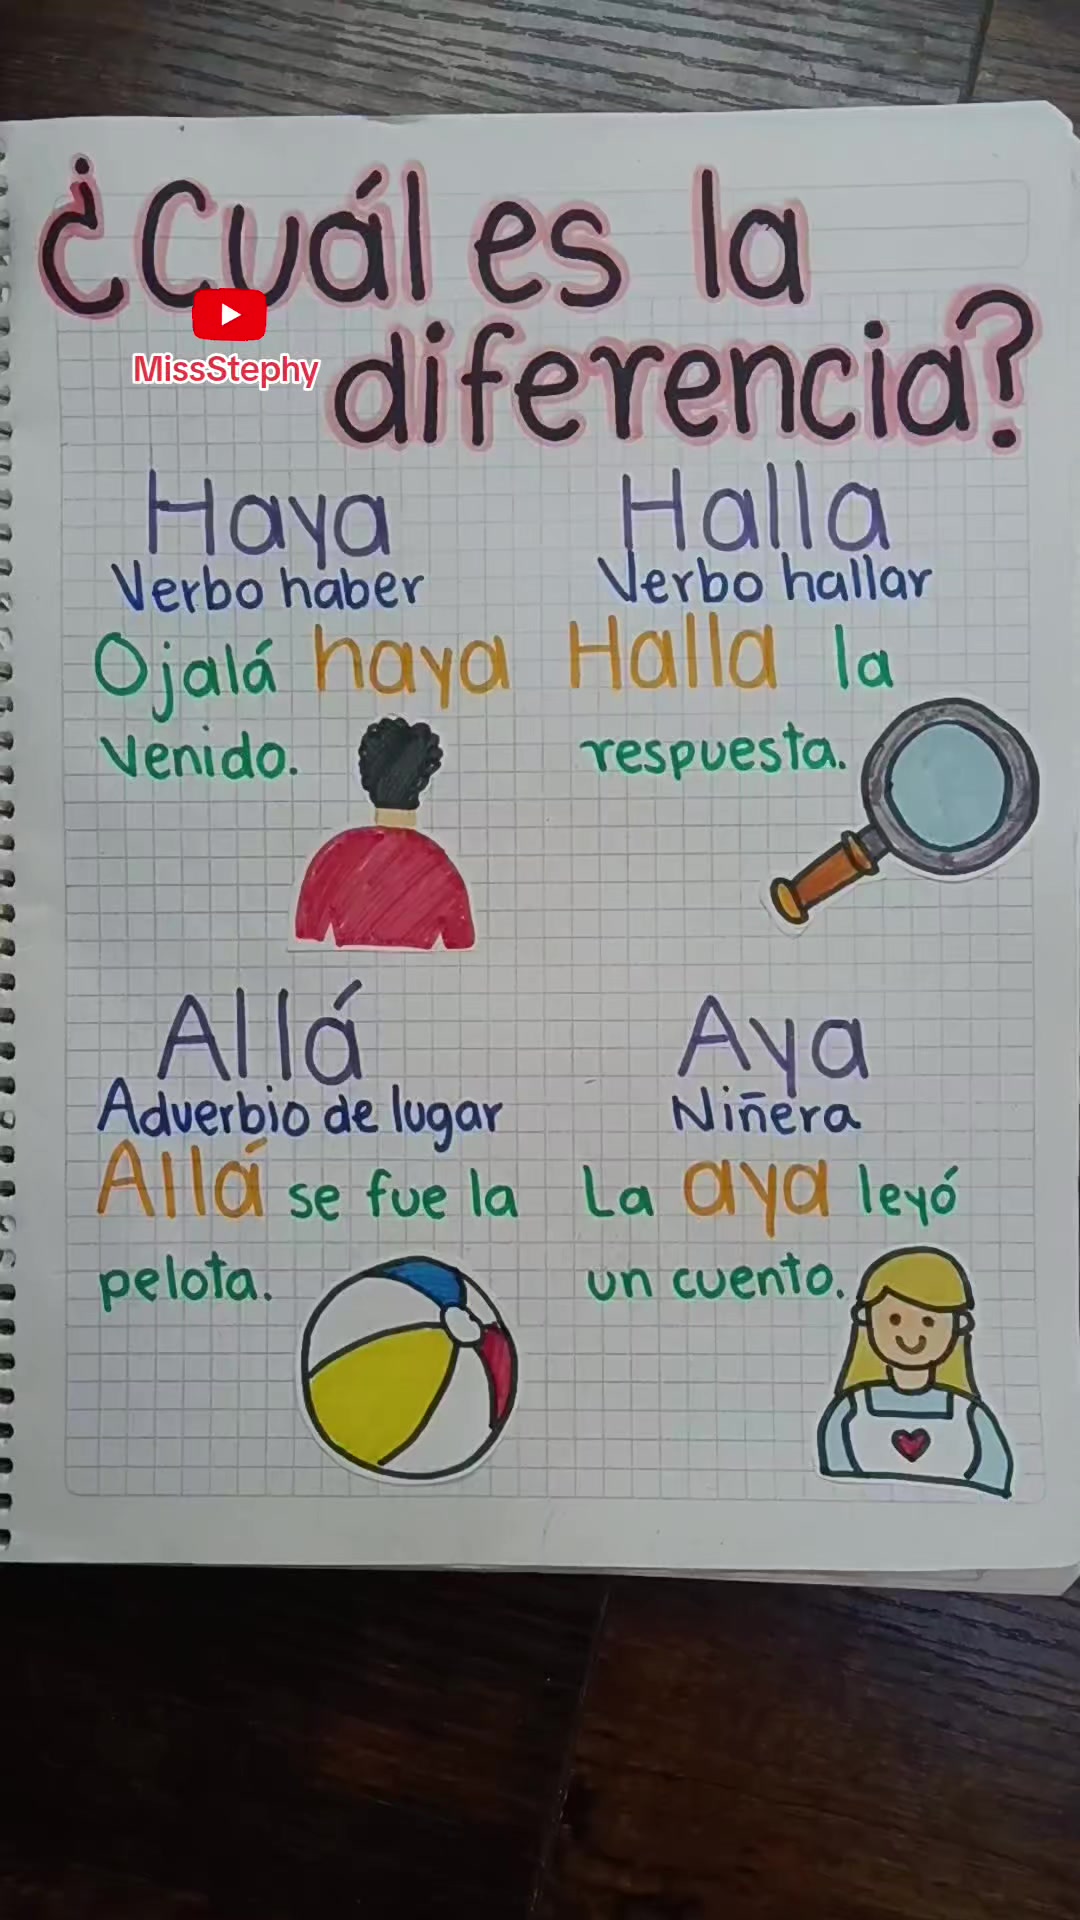 ¿Cuál es la
diferencia?
MissStephy
Haya
Verbo haber
Ojalá haya
venido.
Halla
Verbo hallar
Halla la
respuesta.
Allá
Adverbio de lugar
Allá se fue la
pelota.
Aya
Niñera
La aya leyó
un cuento.